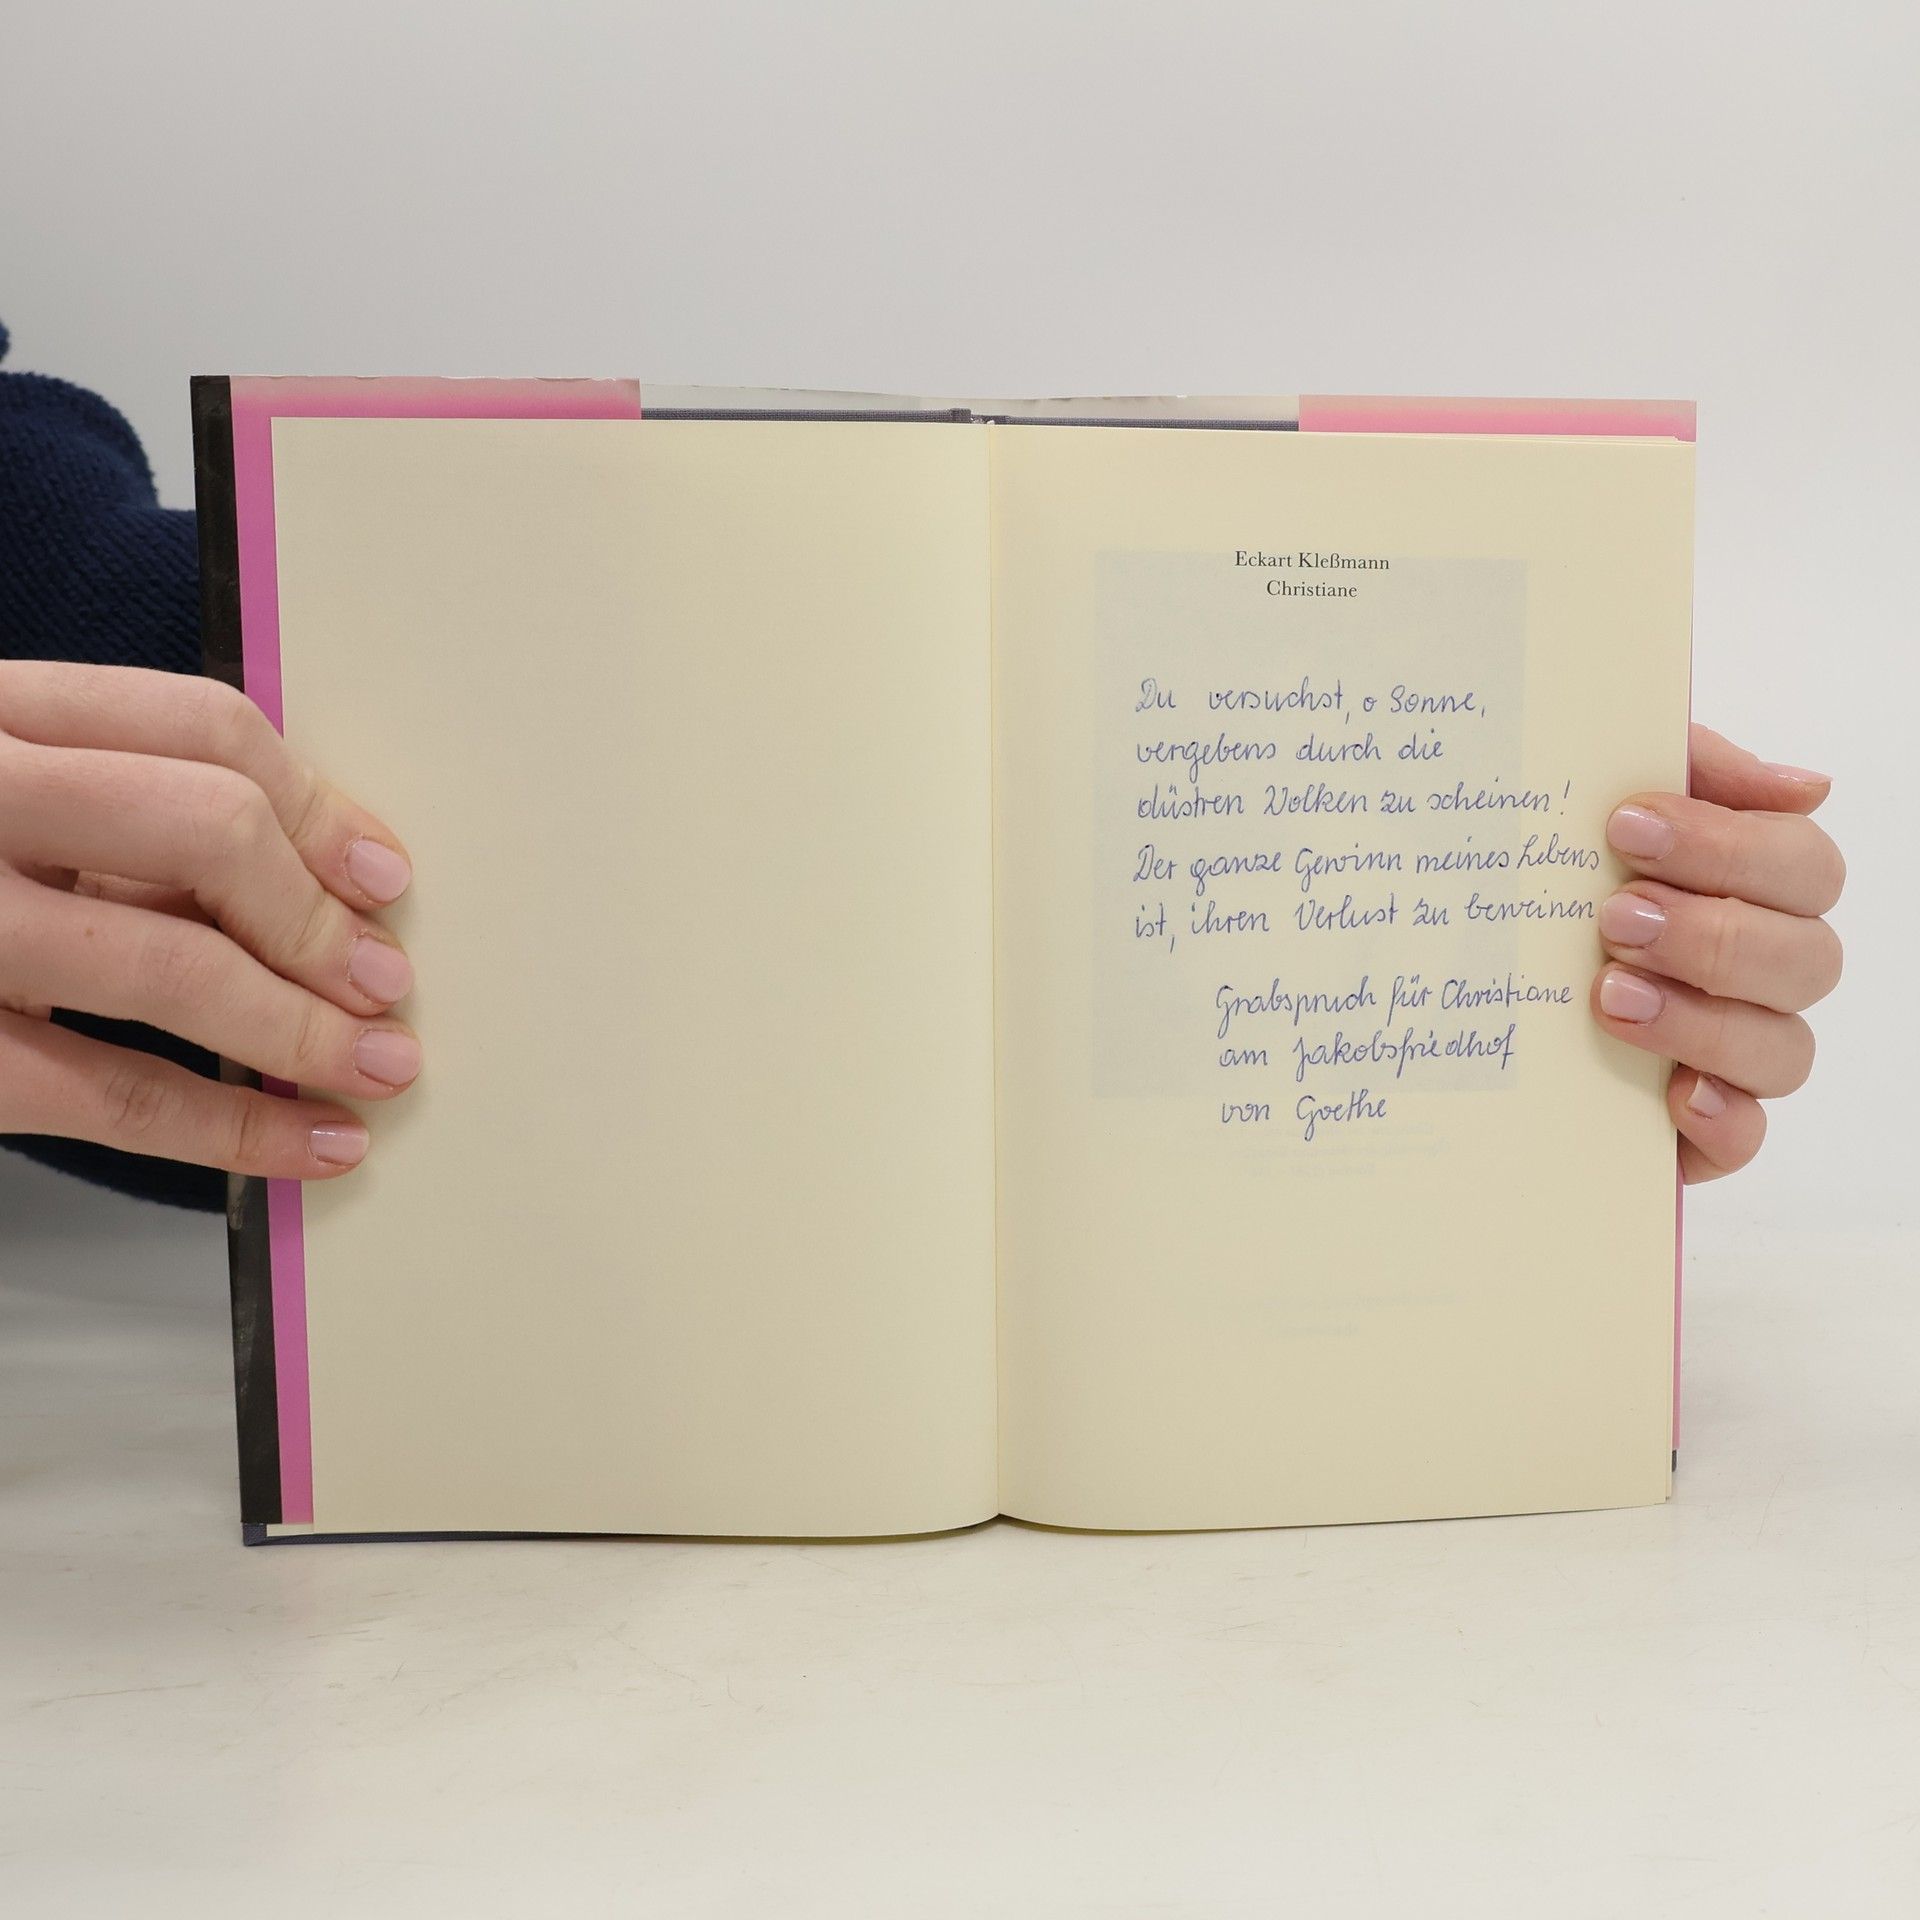 Eckart Kleßmann
Christiane
Du versuchst, o Sonne,
vergebens durch die
düstren Wolken zu scheinen!
Der ganze Gewinn meines Lebens
ist, ihren Verlust zu beweinen
Grabspruch für Christiane
am Jakobsfriedhof
von Goethe